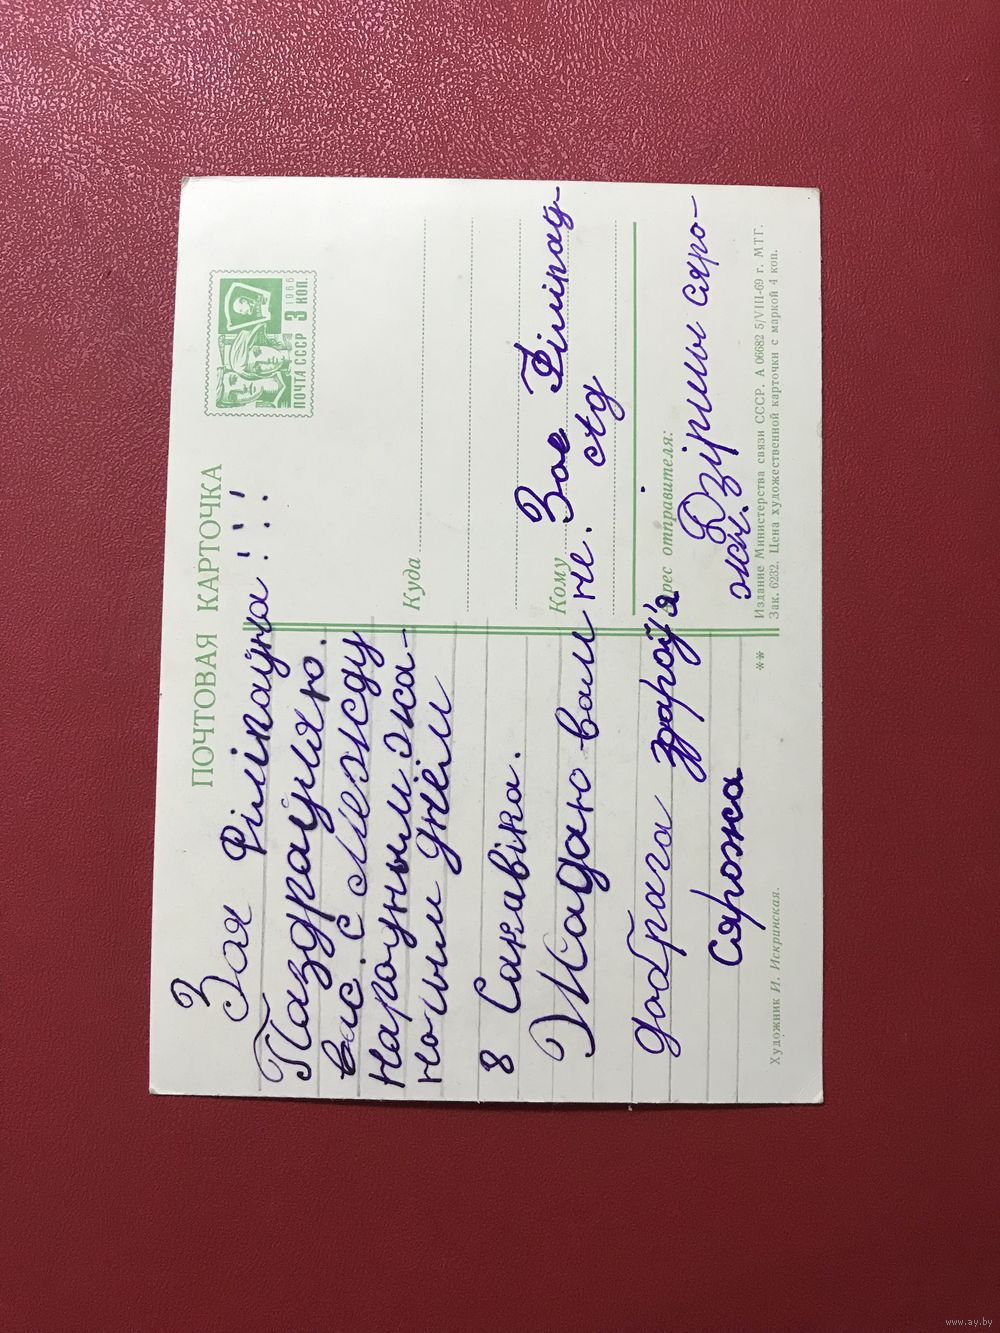 ПОЧТОВАЯ КАРТОЧКА
1966
3 КОП.
ПОЧТА СССР
Зоя Філіпаўна!!!
Паздрауляю.
вас. С Между
народным жа-
ночым днём
8 Сакавіка.
Жадаю вам
добрага здароў'я
Сярожа
Куда
Кому
не. Зое Філіпаў-
Адрес отправителя:
Дзірмы сяро-
жы.
Издание Министерства связи СССР. А 06682 5/VIII-69 г. МТГ.
Зак. 6232. Цена художественной карточки с маркой 4 коп.
**
Художник И. Искринская.
www.ay.by